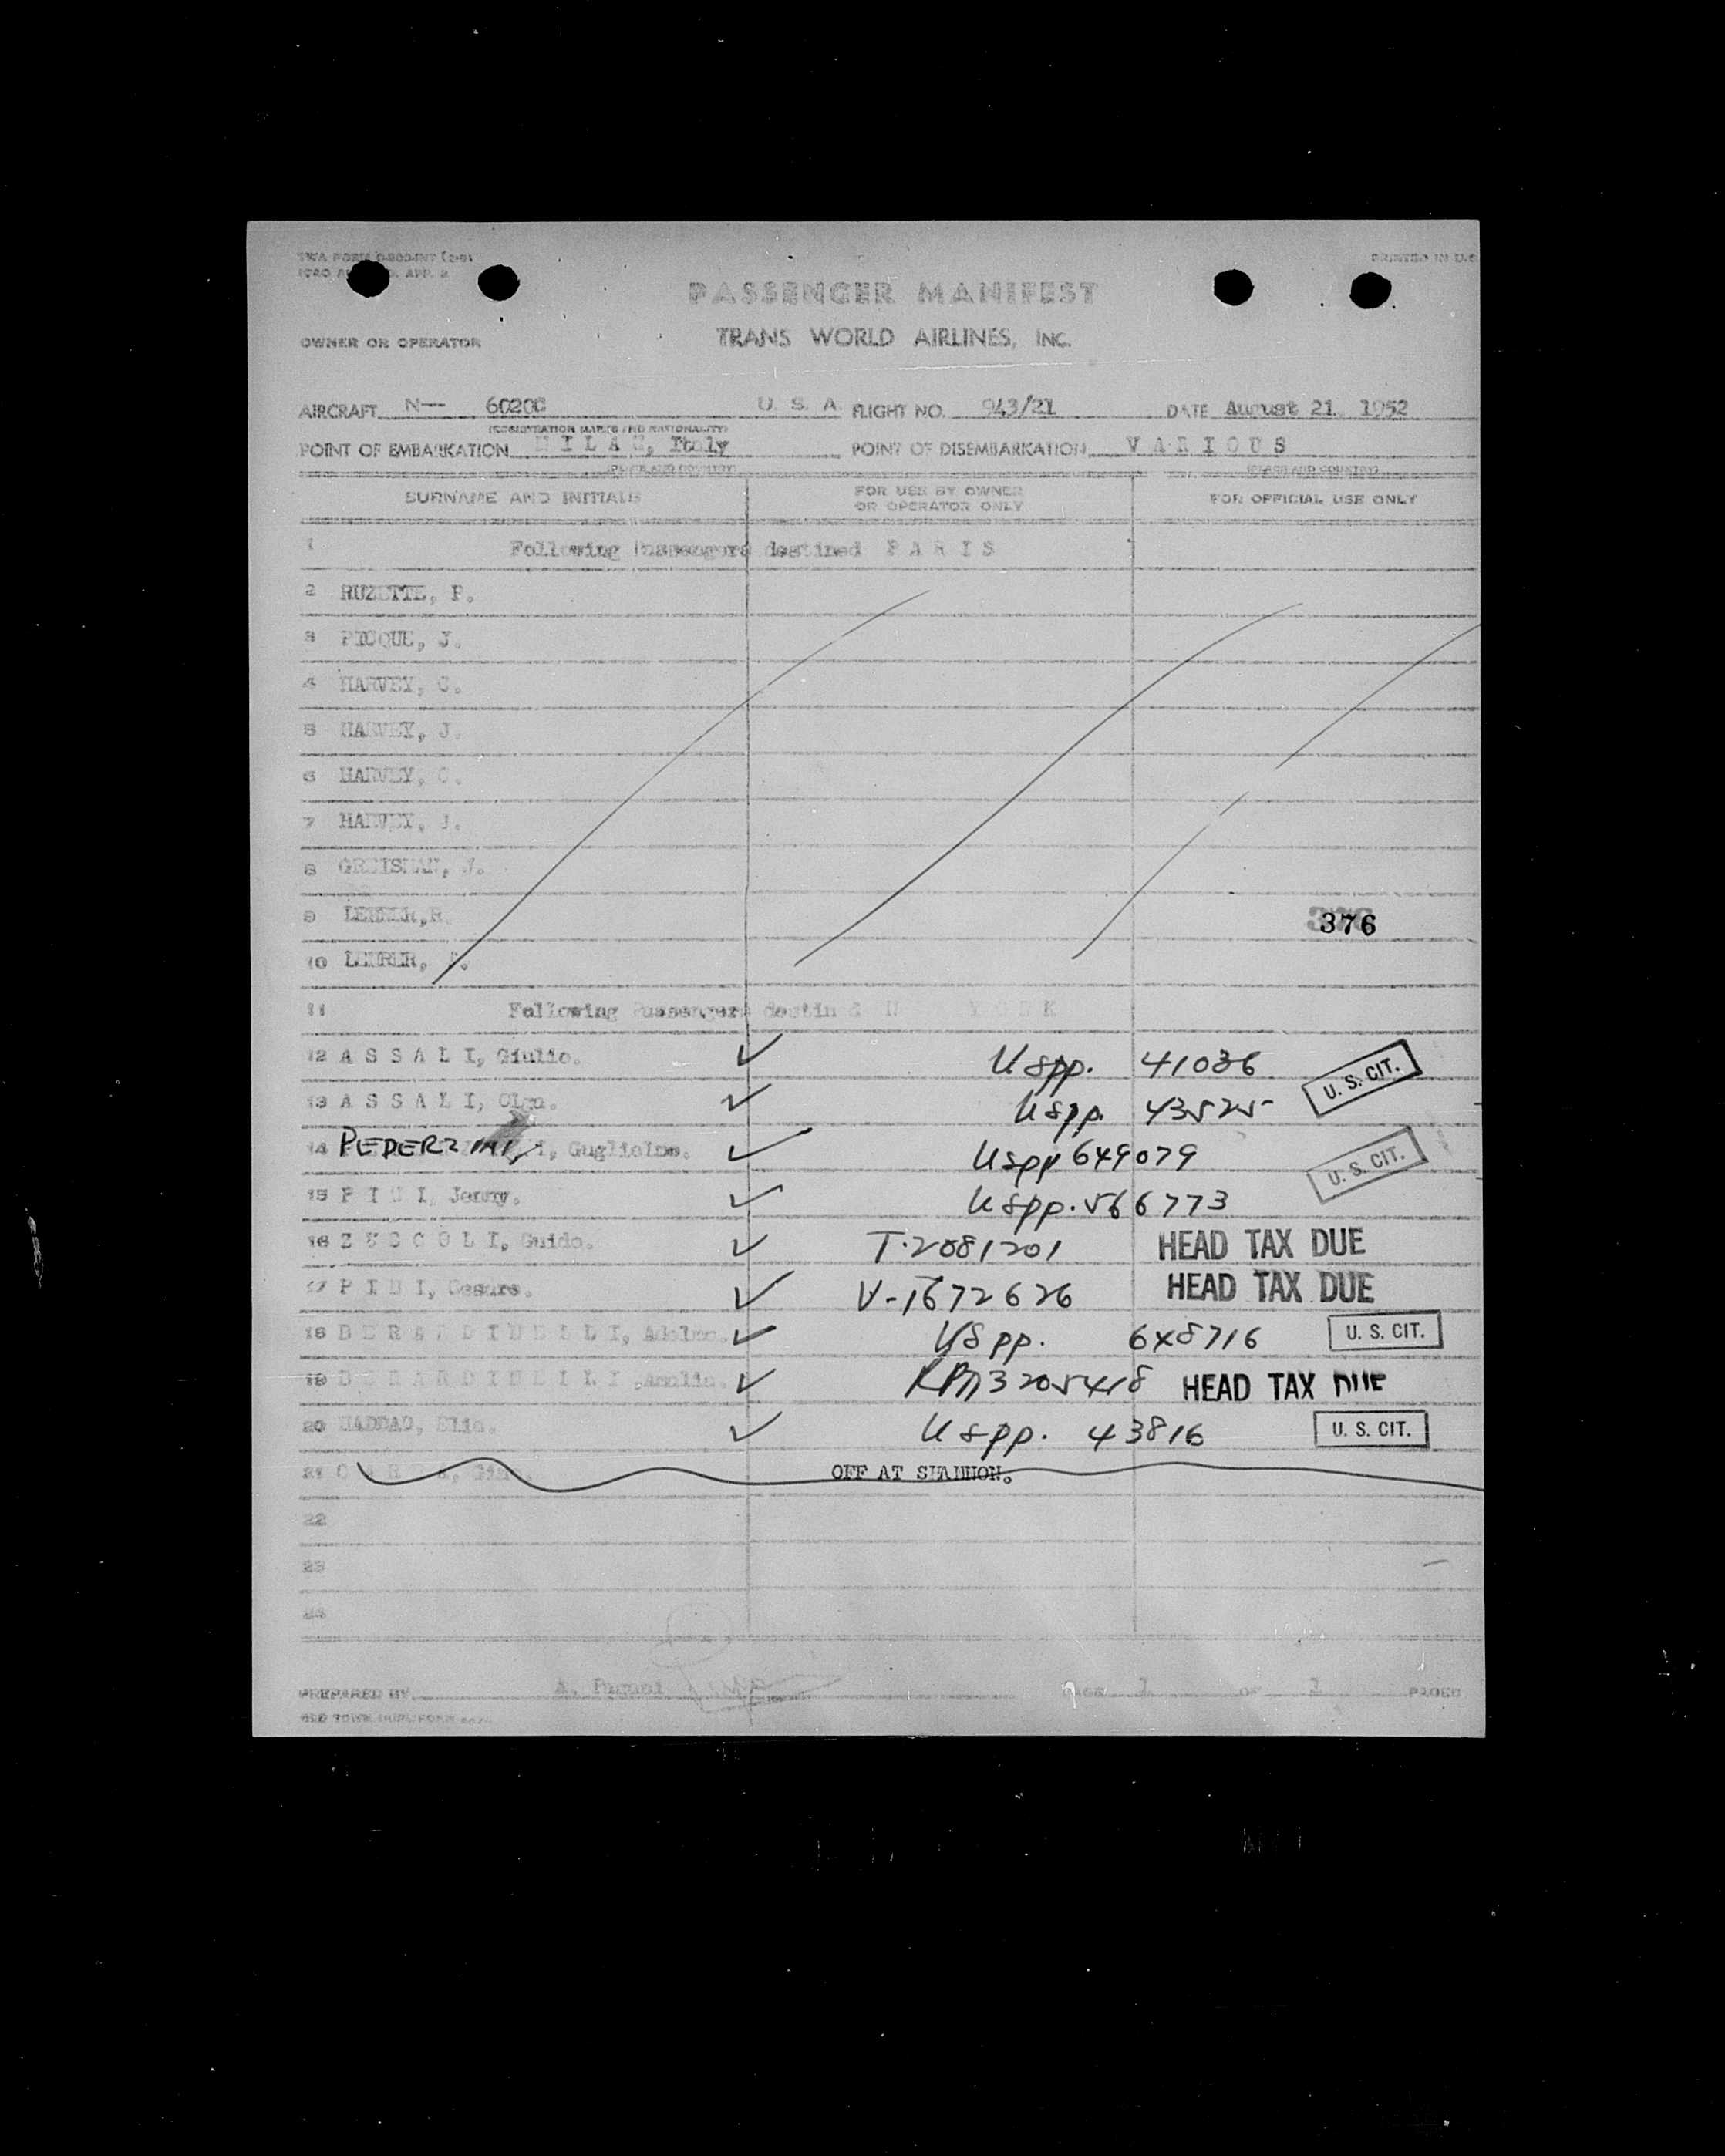 TWA FORM
PRINTED IN U.S
PASSENGER MANIFEST
OWNER OR OPERATOR TRANS WORLD AIRLINES, INC.
AIRCRAFT N— 6020C U. S. A. FLIGHT NO. 943/21 DATE August 21 1952
(REGISTRATION MARKS AND NATIONALITY)
POINT OF EMBARKATION MILAN, Italy POINT OF DISEMBARKATION VARIOUS
(PLACE AND COUNTRY) (PLACE AND COUNTRY)
SURNAME AND INITIALS FOR USE BY OWNER OR OPERATOR ONLY FOR OFFICIAL USE ONLY
1 Following Passengers destined PARIS
2 RUZETTE, P.
3 PICQUE, J.
4 HARVEY, C.
5 HARVEY, J.
6 HARVEY, C.
7 HARVEY, J.
8 J.
9 LEHRER, R. 376
10 LEHRER,
11 Following Passengers destined NEW YORK
12 ASSALI, Giulio. ✓ US pp. 41036 U. S. CIT.
13 ASSALI, Olga. ✓ US pp. 43525
14 PEDERZINI, Guglielmo. ✓ US pp 649079 U. S. CIT.
15 PINI, Jenny. ✓ US pp. 566773
16 ZUCCOLI, Guido. ✓ T-2081201 HEAD TAX DUE
17 PINI, Cesare. ✓ V-1672626 HEAD TAX DUE
18 BERARDINELLI, Adelmo. ✓ US pp. 648716 U. S. CIT.
19 BERARDINELLI, Amalia. ✓ RPm 3205418 HEAD TAX DUE
20 HADDAD, Elia. ✓ US pp. 43816 U. S. CIT.
21 OFF AT SHANNON.
22
23
24
PREPARED BY A. PAGE 1 OF 1 PAGES